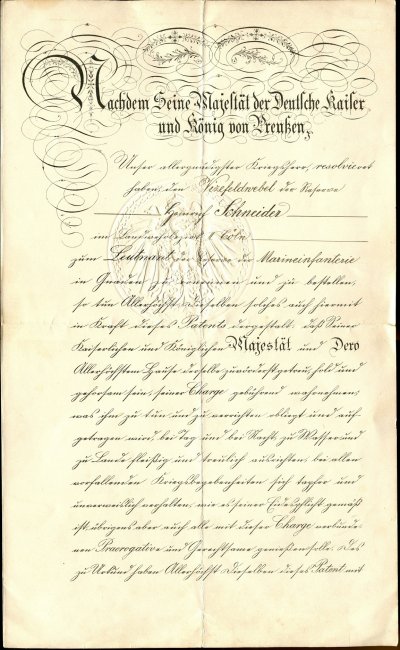 Nachdem Seine Majestät der Deutsche Kaiser
und König von Preußen,
Unser allergnädigster Kriegsherr, resolviret
haben, den Vizefeldwebel der Reserve
Heinrich Schneider
im Landwehrbezirk I Cöln
zum Leutnant der Reserve der Marineinfanterie
in Gnaden zu ernennen und zu bestellen,
so tun Allerhöchst dieselben solches auch hiermit
in Kraft dieses Patents dergestalt, daß Seiner
Kaiserlichen und Königlichen Majestät und Dero
Allerhöchstem Hause derselbe zuvörderst getreu, hold und
gehorsam sein, seiner Charge gebührend wahrnehmen,
was ihm zu tun und zu verrichten obliegt und auf-
getragen wird, bei Tag und bei Nacht, zu Wasser und
zu Lande fleißig und treulich ausrichten, bei allen
vorfallenden Kriegsbegebenheiten sich tapfer und
unverweislich verhalten, wie es seiner Eidespflicht gemäß
ist, übrigens aber auch alle mit dieser Charge verbunde-
nen Praerogative und Gerechtsame genießen solle. Des
zu Urkund haben Allerhöchst Dieselben dieses Patent mit